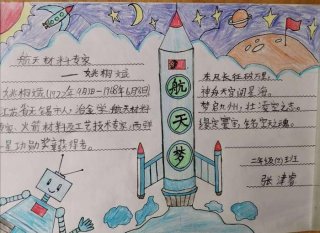 航天材料专家
——姚桐斌
姚桐斌(1922年9月3日-1968年6月8日)
江苏省无锡市人,冶金学、航天材料
专家、火箭材料及工艺技术专家,两弹一
星功勋奖章获得者。
航
天
梦
东风长征破万里,
神舟天空问星海。
梦起九州,壮凌空之志。
缘定寰宇,铭空天魂。
二年级(7)班
张津睿